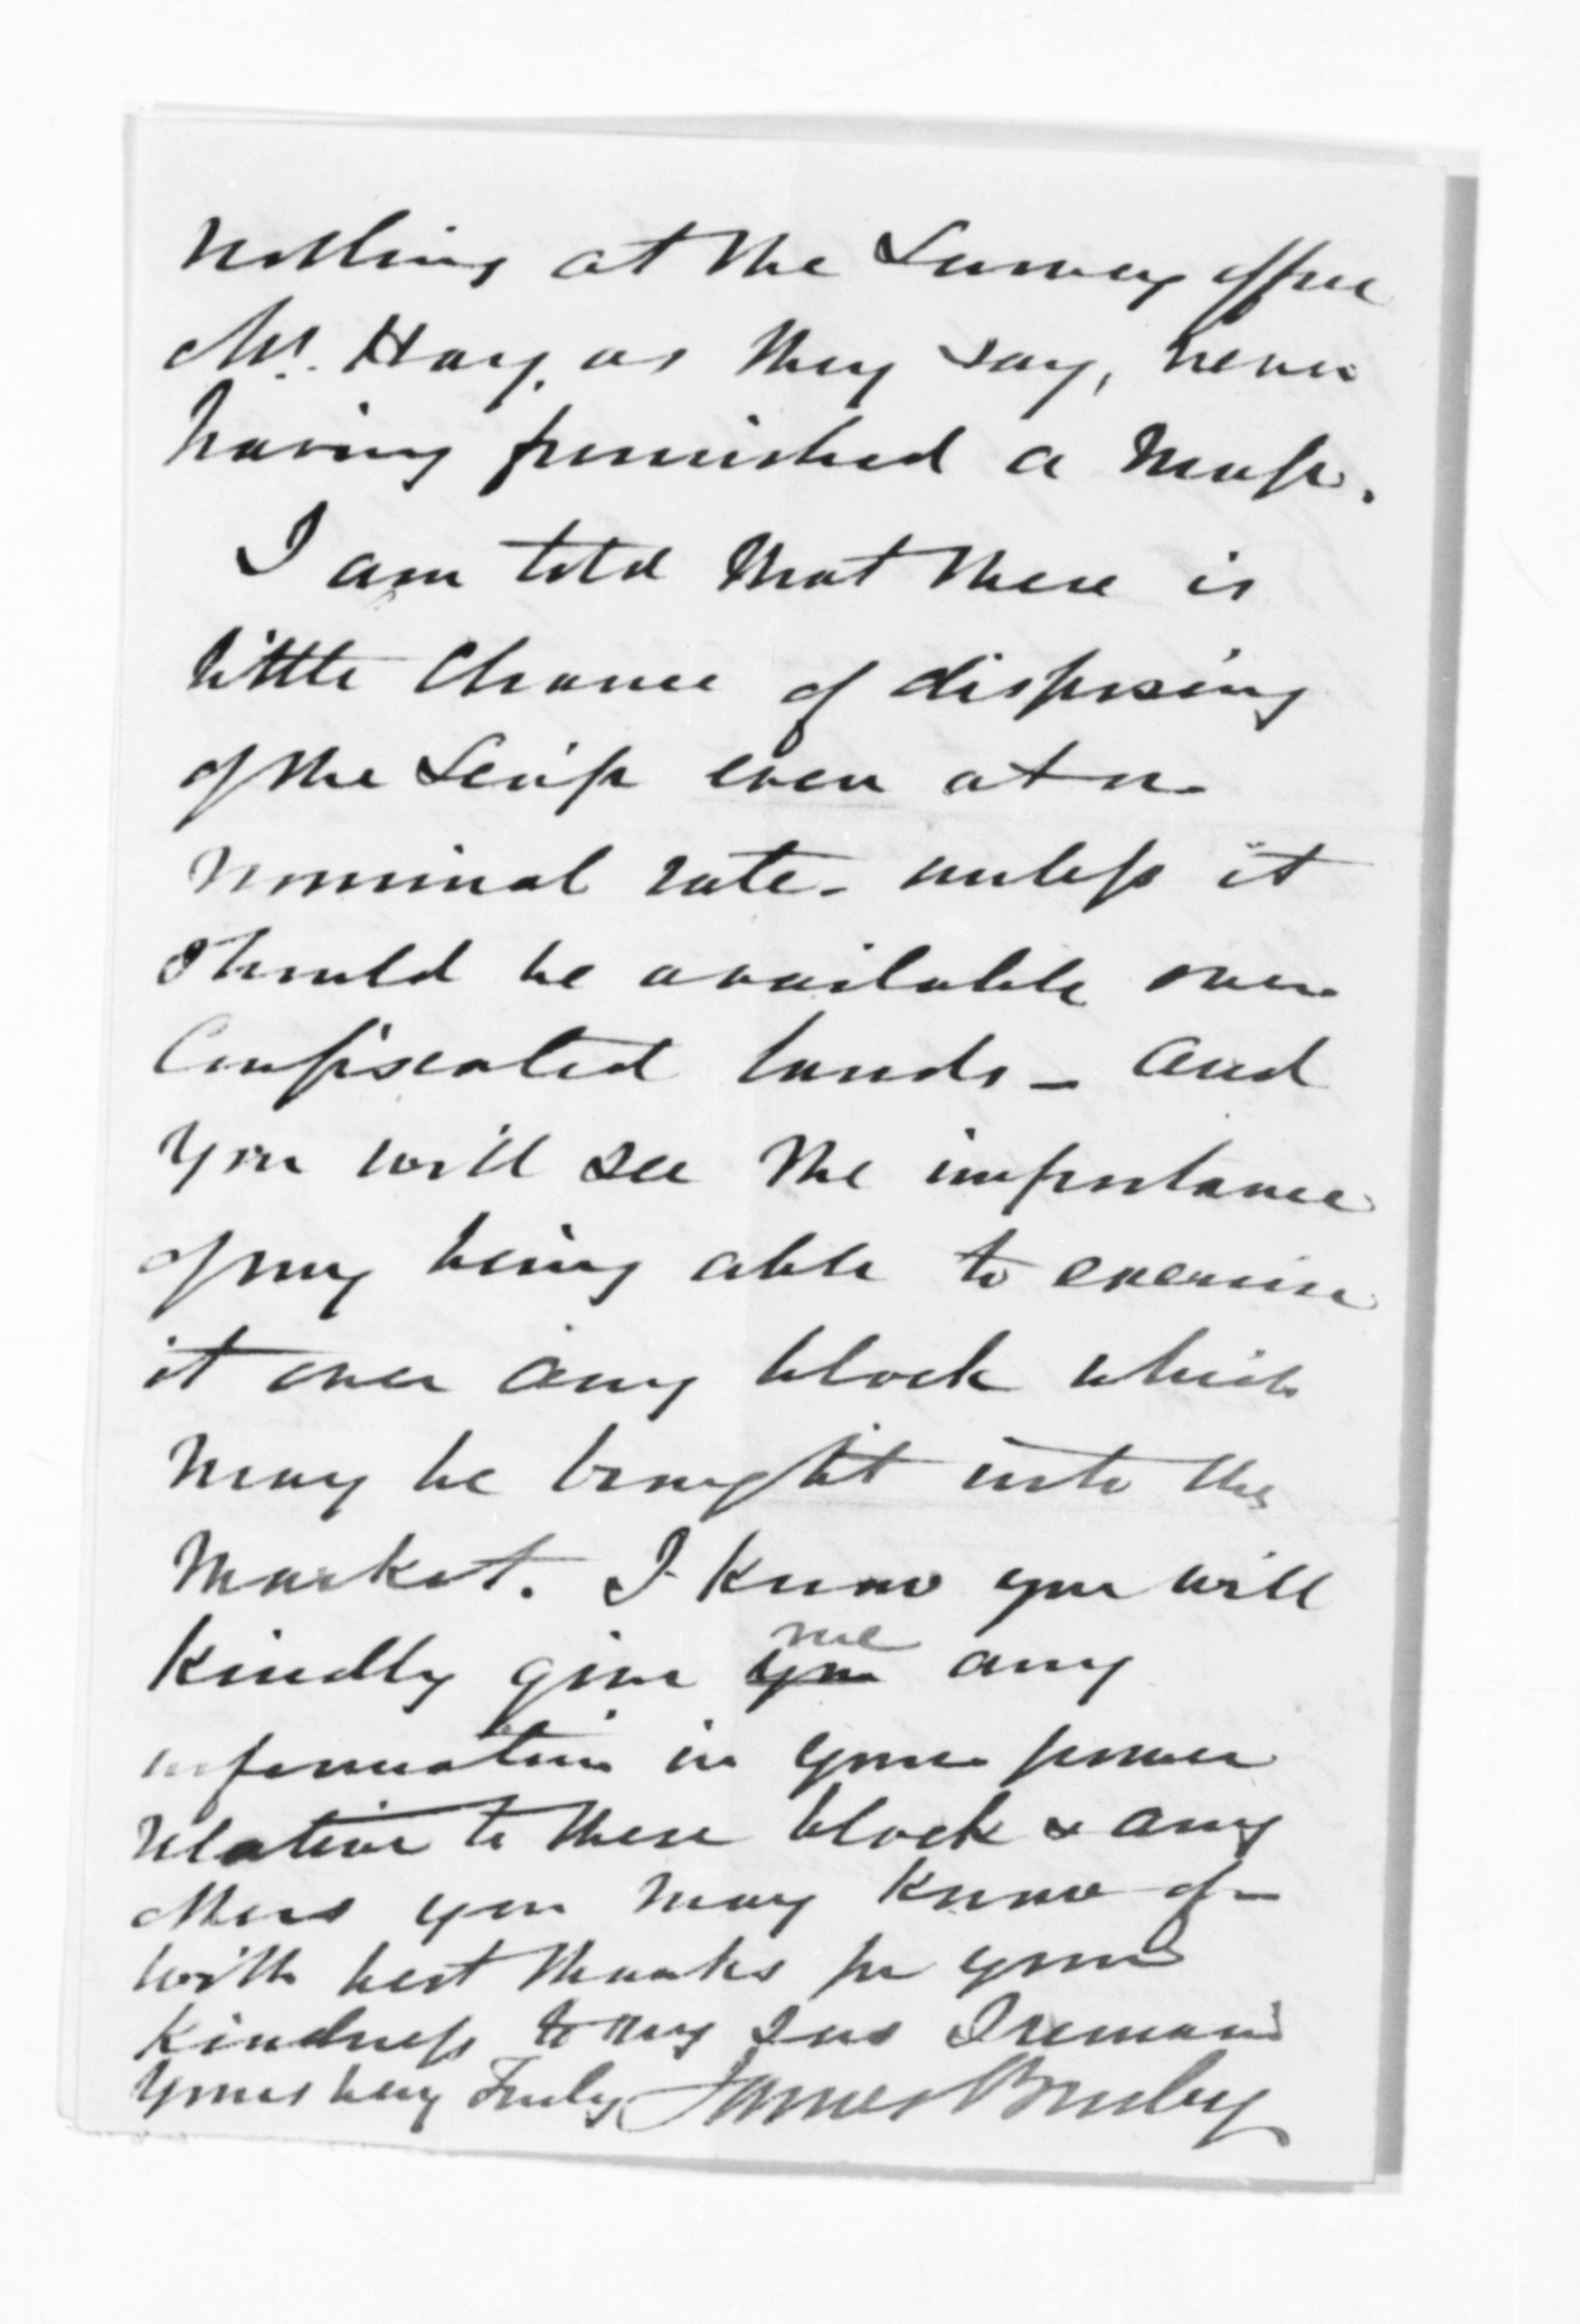 nothing at the Survey office
Mr. Hay, as they say, never
having furnished a Map.
I am told that there is
little chance of disposing
of the Scrip even at a
nominal rate - unless it
should be available over
Confiscated lands - and
you will see the importance
of my being able to exercise
it over any block which
may be brought into the
Market. I know you will
kindly give you me any
information in your power
relative to these block & any
others you may know of -
with best thanks for your
kindness to my son I remain
Yours very Truly James Busby